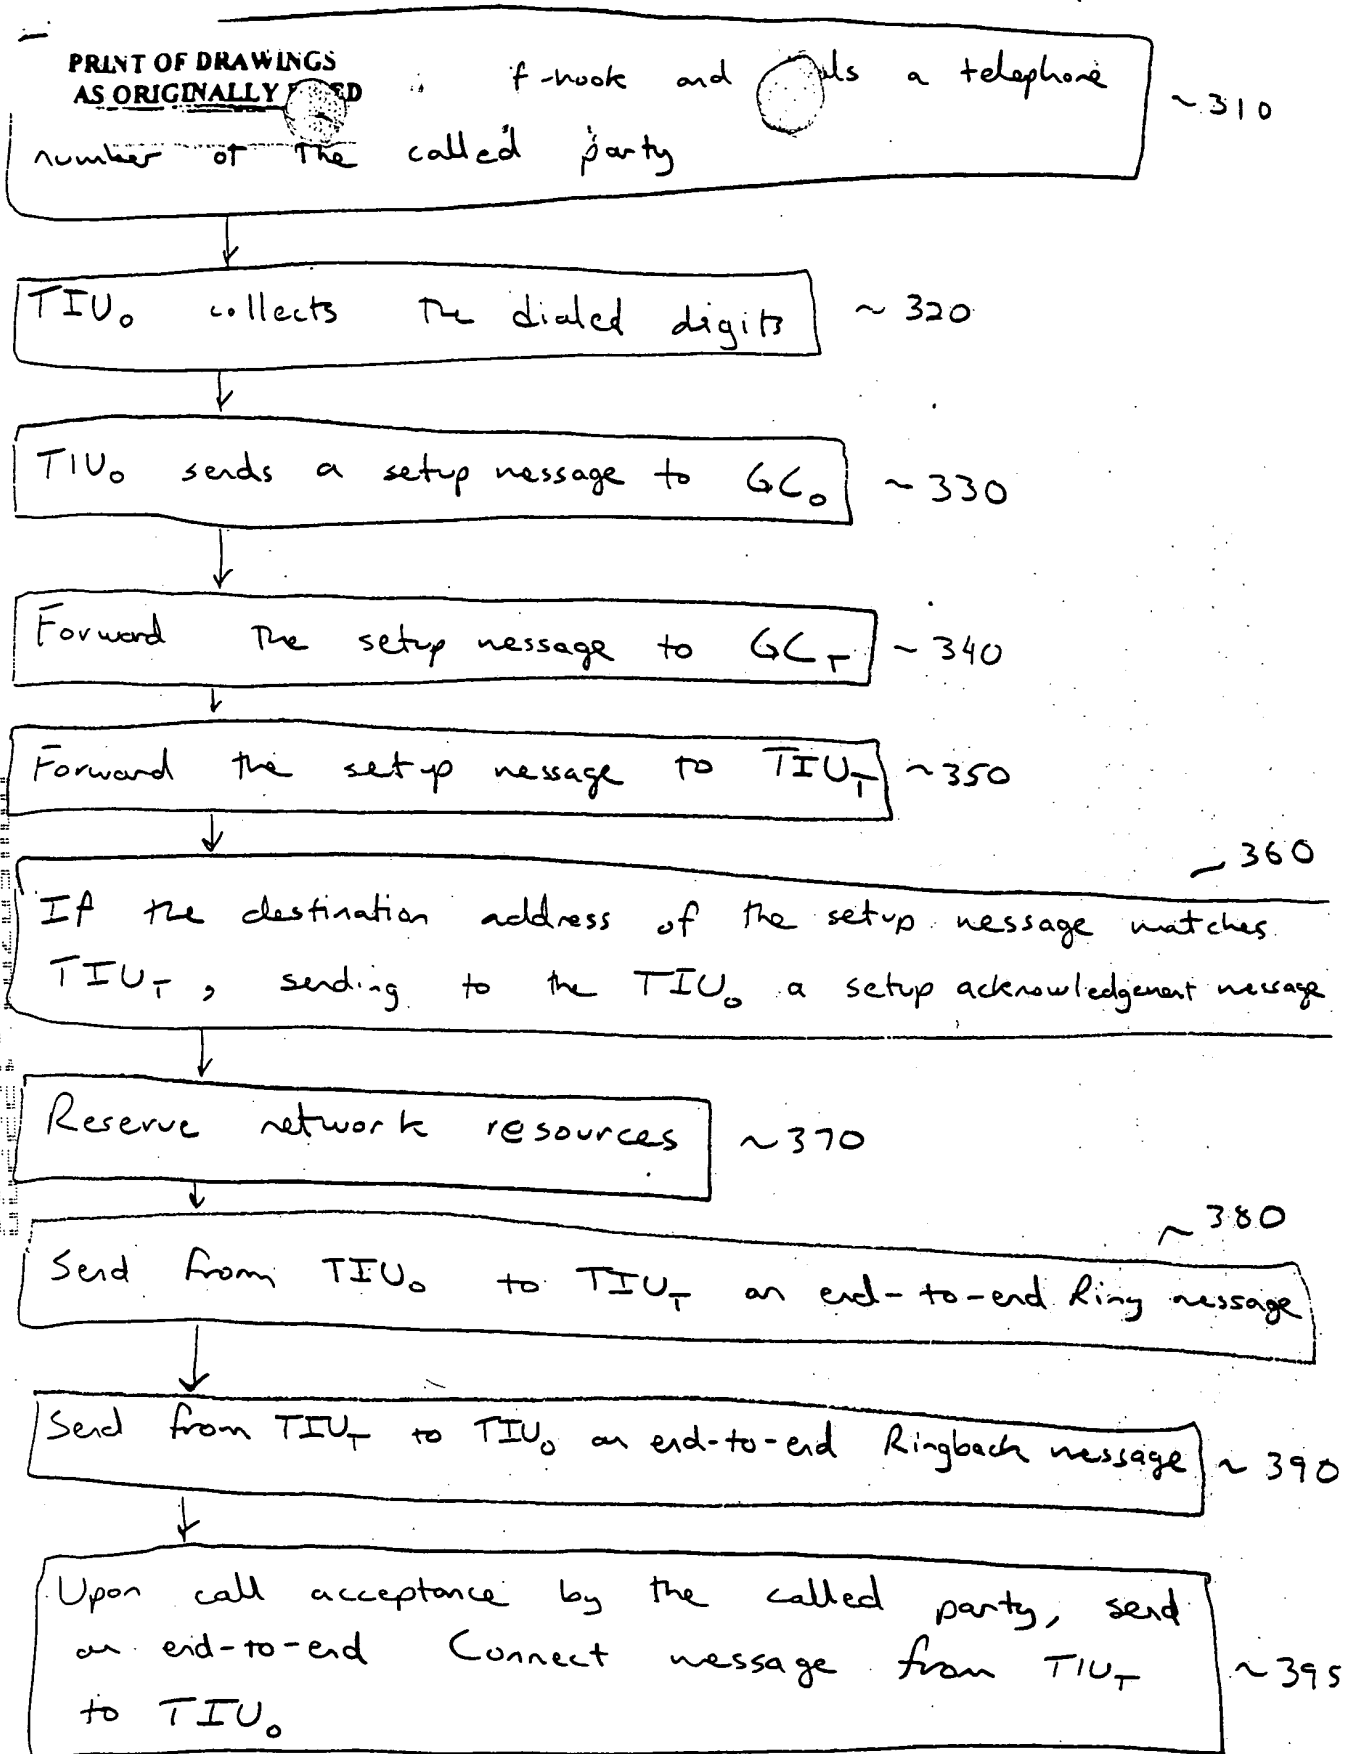 PRINT OF DRAWINGS
AS ORIGINALLY
f-hook and a telephone
~310
number of the called party
TIU₀ collects the dialed digits
~320
TIU₀ sends a setup message to GC₀
~330
Forward the setup message to GC_T
~340
Forward the setup message to TIU_T
~350
~360
If the destination address of the setup message matches
TIU_T, sending to the TIU₀ a setup acknowledgement message
Reserve network resources
~370
~380
Send from TIU₀ to TIU_T an end-to-end Ring message
Send from TIU_T to TIU₀ an end-to-end Ringback message
~390
Upon call acceptance by the called party, send
an end-to-end Connect message from TIU_T
~395
to TIU₀